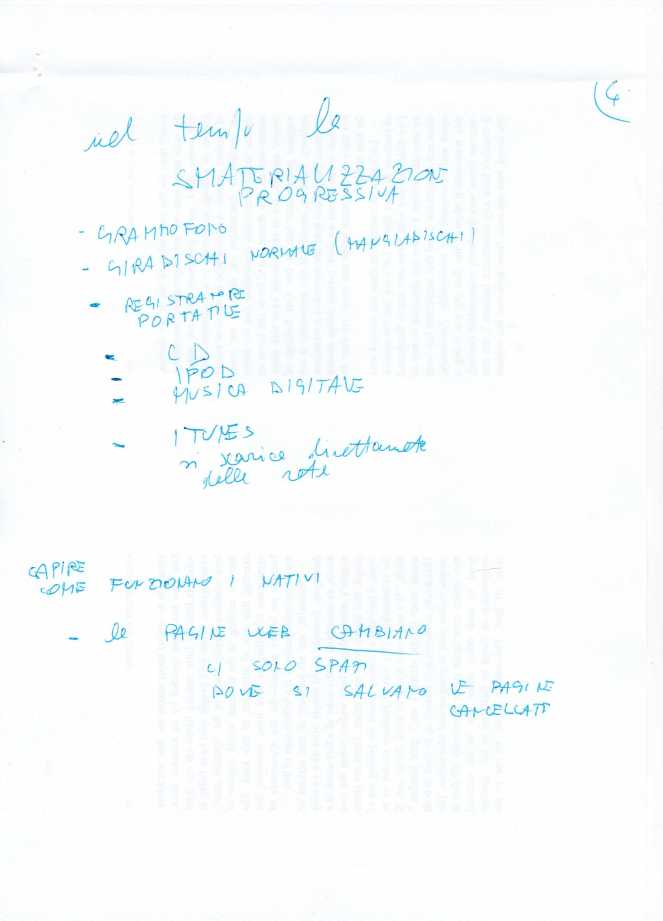 4
nel tempo la
SMATERIALIZZAZIONE
PROGRESSIVA
- GRAMMOFONO
- GIRADISCHI NORMALE (MANGIADISCHI)
- REGISTRATORE
PORTATILE
- CD
- IPOD
- MUSICA DIGITALE
- ITUNES
si scarica direttamente
dalla rete
CAPIRE
COME FUNZIONANO I NATIVI
- le PAGINE WEB CAMBIANO
CI SONO SPAZI
DOVE SI SALVANO LE PAGINE
CANCELLATE